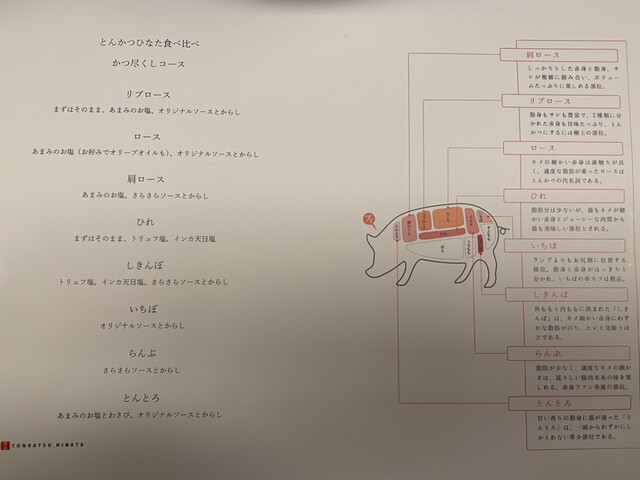 とんかつひなた食べ比べ
かつ尽くしコース
リブロース
まずはそのまま、あまみのお塩、オリジナルソースとからし
ロース
あまみのお塩（お好みでオリーブオイルも）、オリジナルソースとからし
肩ロース
あまみのお塩、さらさらソースとからし
ひれ
まずはそのまま、トリュフ塩、インカ天日塩
しきんぼ
トリュフ塩、インカ天日塩、さらさらソースとからし
いちぼ
オリジナルソースとからし
らんぷ
さらさらソースとからし
とんとろ
あまみのお塩とわさび、オリジナルソースとからし
TONKATSU HINATA
肩ロース
しっかりとした赤身と脂身、サ
シが複雑に絡み合い、ボリュー
ムたっぷりに楽しめる部位。
リブロース
脂身もサシも豊富で、2種類に分
かれた赤身も旨味たっぷり、とん
かつにするには極上の部位。
ロース
キメの細かい赤身は歯触りが良
く、適度な脂肪が乗ったロースは
とんかつの代名詞である。
ひれ
脂肪分は少ないが、最もキメが細
かい赤身とジューシーな肉質から
最も美味しい部位とされる。
いちぼ
ランプよりもお尻側に位置する
部位。脂身と赤身がはっきりと
分かれ、いちぼの串カツは絶品。
しきんぼ
外ももと内ももに挟まれた「しき
んぼ」は、キメ細かい赤身にわず
かな脂肪がのり、ヒレと見紛うほ
どである。
らんぷ
脂肪が少なく、適度なキメの細か
さは、猛々しい豚肉本来の味を楽
しめる、赤身ファン垂涎の部位。
とんとろ
甘い香りの脂身に筋が通った「と
んとろ」は、一頭からわずかにし
かとれない希少部位である。